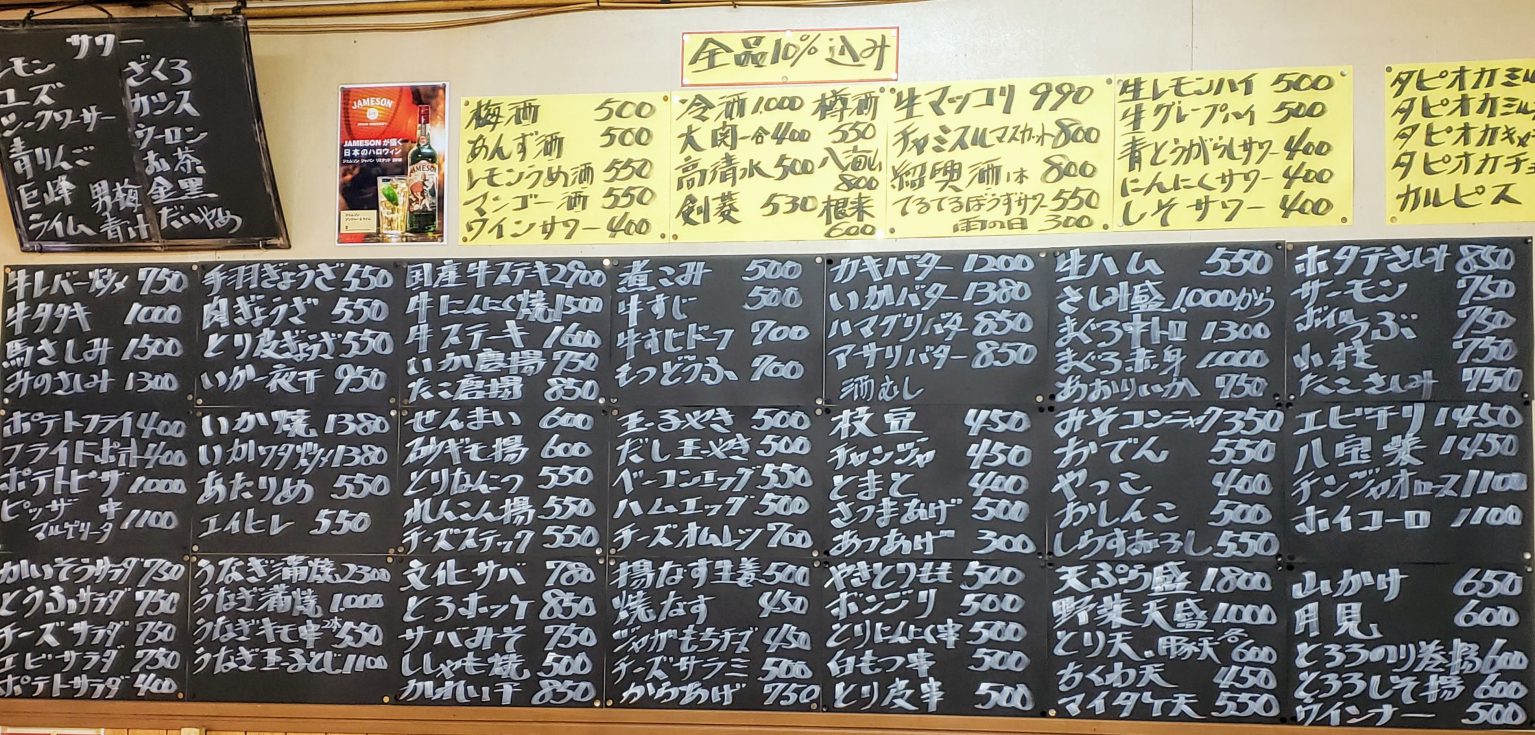 サワー
レモン ざくろ
ユズ カシス
シークワーサー ウーロン
青りんご お茶
巨峰 男梅 金黒
ライム 青汁 だいやめ
JAMESON
JAMESONが描く
日本のハロウィン
全品10%込み
梅酒 500
あんず酒 500
レモンうめ酒 550
マンゴー酒 550
ワインサワー 400
冷酒 1.000 樽酒
大関一合 400 550
高清水 500 八海山
800
剣菱 530 根来
600
生マッコリ 990
チャミスルマスカット 800
紹興酒 1本 800
てるてるぼうずサワー 550
雨の日 300
生レモンハイ 500
生グレープハイ 500
青とうがらしサワー 400
にんにくサワー 400
しそサワー 400
タピオカミル
タピオカミル
タピオカキャ
タピオカチョ
カルピス
牛レバー炒メ 750
牛タタキ 1000
馬さしみ 1500
みのさしみ 1300
手羽ぎょうざ 550
肉ぎょうざ 550
とり皮ぎょうざ 550
いか一夜干 950
国産牛ステキ 2900
牛にんにく焼 1500
牛ステーキ 1600
いか唐揚 750
たこ唐揚 850
煮こみ 500
牛すじ 500
牛すじドーフ 700
もつどうふ 700
カキバター 1200
いかバター 1380
ハマグリバター 850
アーサリバター 850
酒むし
生ハム 550
さしみ盛 1.000から
まぐろ中トロ 1300
まぐろ赤身 1000
あおりいか 750
ホタテさしみ 850
サーモン 750
ボイルつぶ 750
小柱 750
たこさしみ 750
ポテトフライ 400
フライドポテト 400
ポテトピザ 1000
ピッザ 中
マルゲリータ 1100
いか焼 1380
いかワタ炒メ 1380
あたりめ 550
エイヒレ 550
せんまい 600
砂ギモ揚 600
とりなんこつ 550
れんこん揚 550
チーズスティック 550
玉子やき 500
だし玉やき 500
ベーコンエッグ 550
ハムエッグ 500
チーズオムレツ 700
枝豆 450
チャンジャ 450
とまと 400
さつまあげ 500
あつあげ 300
みそコンニャク 350
おでん 550
やっこ 400
おしんこ 500
しらすおろし 550
エビチリ 1450
八宝菜 1450
チンジャオロース 1100
ホイコーロ 1100
かいそうサラダ 750
とうふサラダ 750
チーズサラダ 750
エビサラダ 750
ポテトサラダ 400
うなぎ蒲焼 2300
うなぎ蒲焼 1.000
うなぎキモ串 2本 550
うなぎ玉子とじ 1100
文化サバ 780
とろホッケ 850
サバみそ 750
ししゃも焼 500
かれい干 850
揚なす生姜 500
焼なす 450
ジャガもちチーズ 450
チーズサラミ 500
からあげ 750
やきとりもも 500
ボンゴリ 500
とりにんにく串 500
白もつ串 500
とり皮串 500
天ぷら盛 1.800
野菜天盛 1000
とり天.豚天各600
ちくわ天 450
マイタケ天 550
山かけ 650
月見 600
とろろのり巻揚 600
とろろしそ揚 600
ウインナー 500